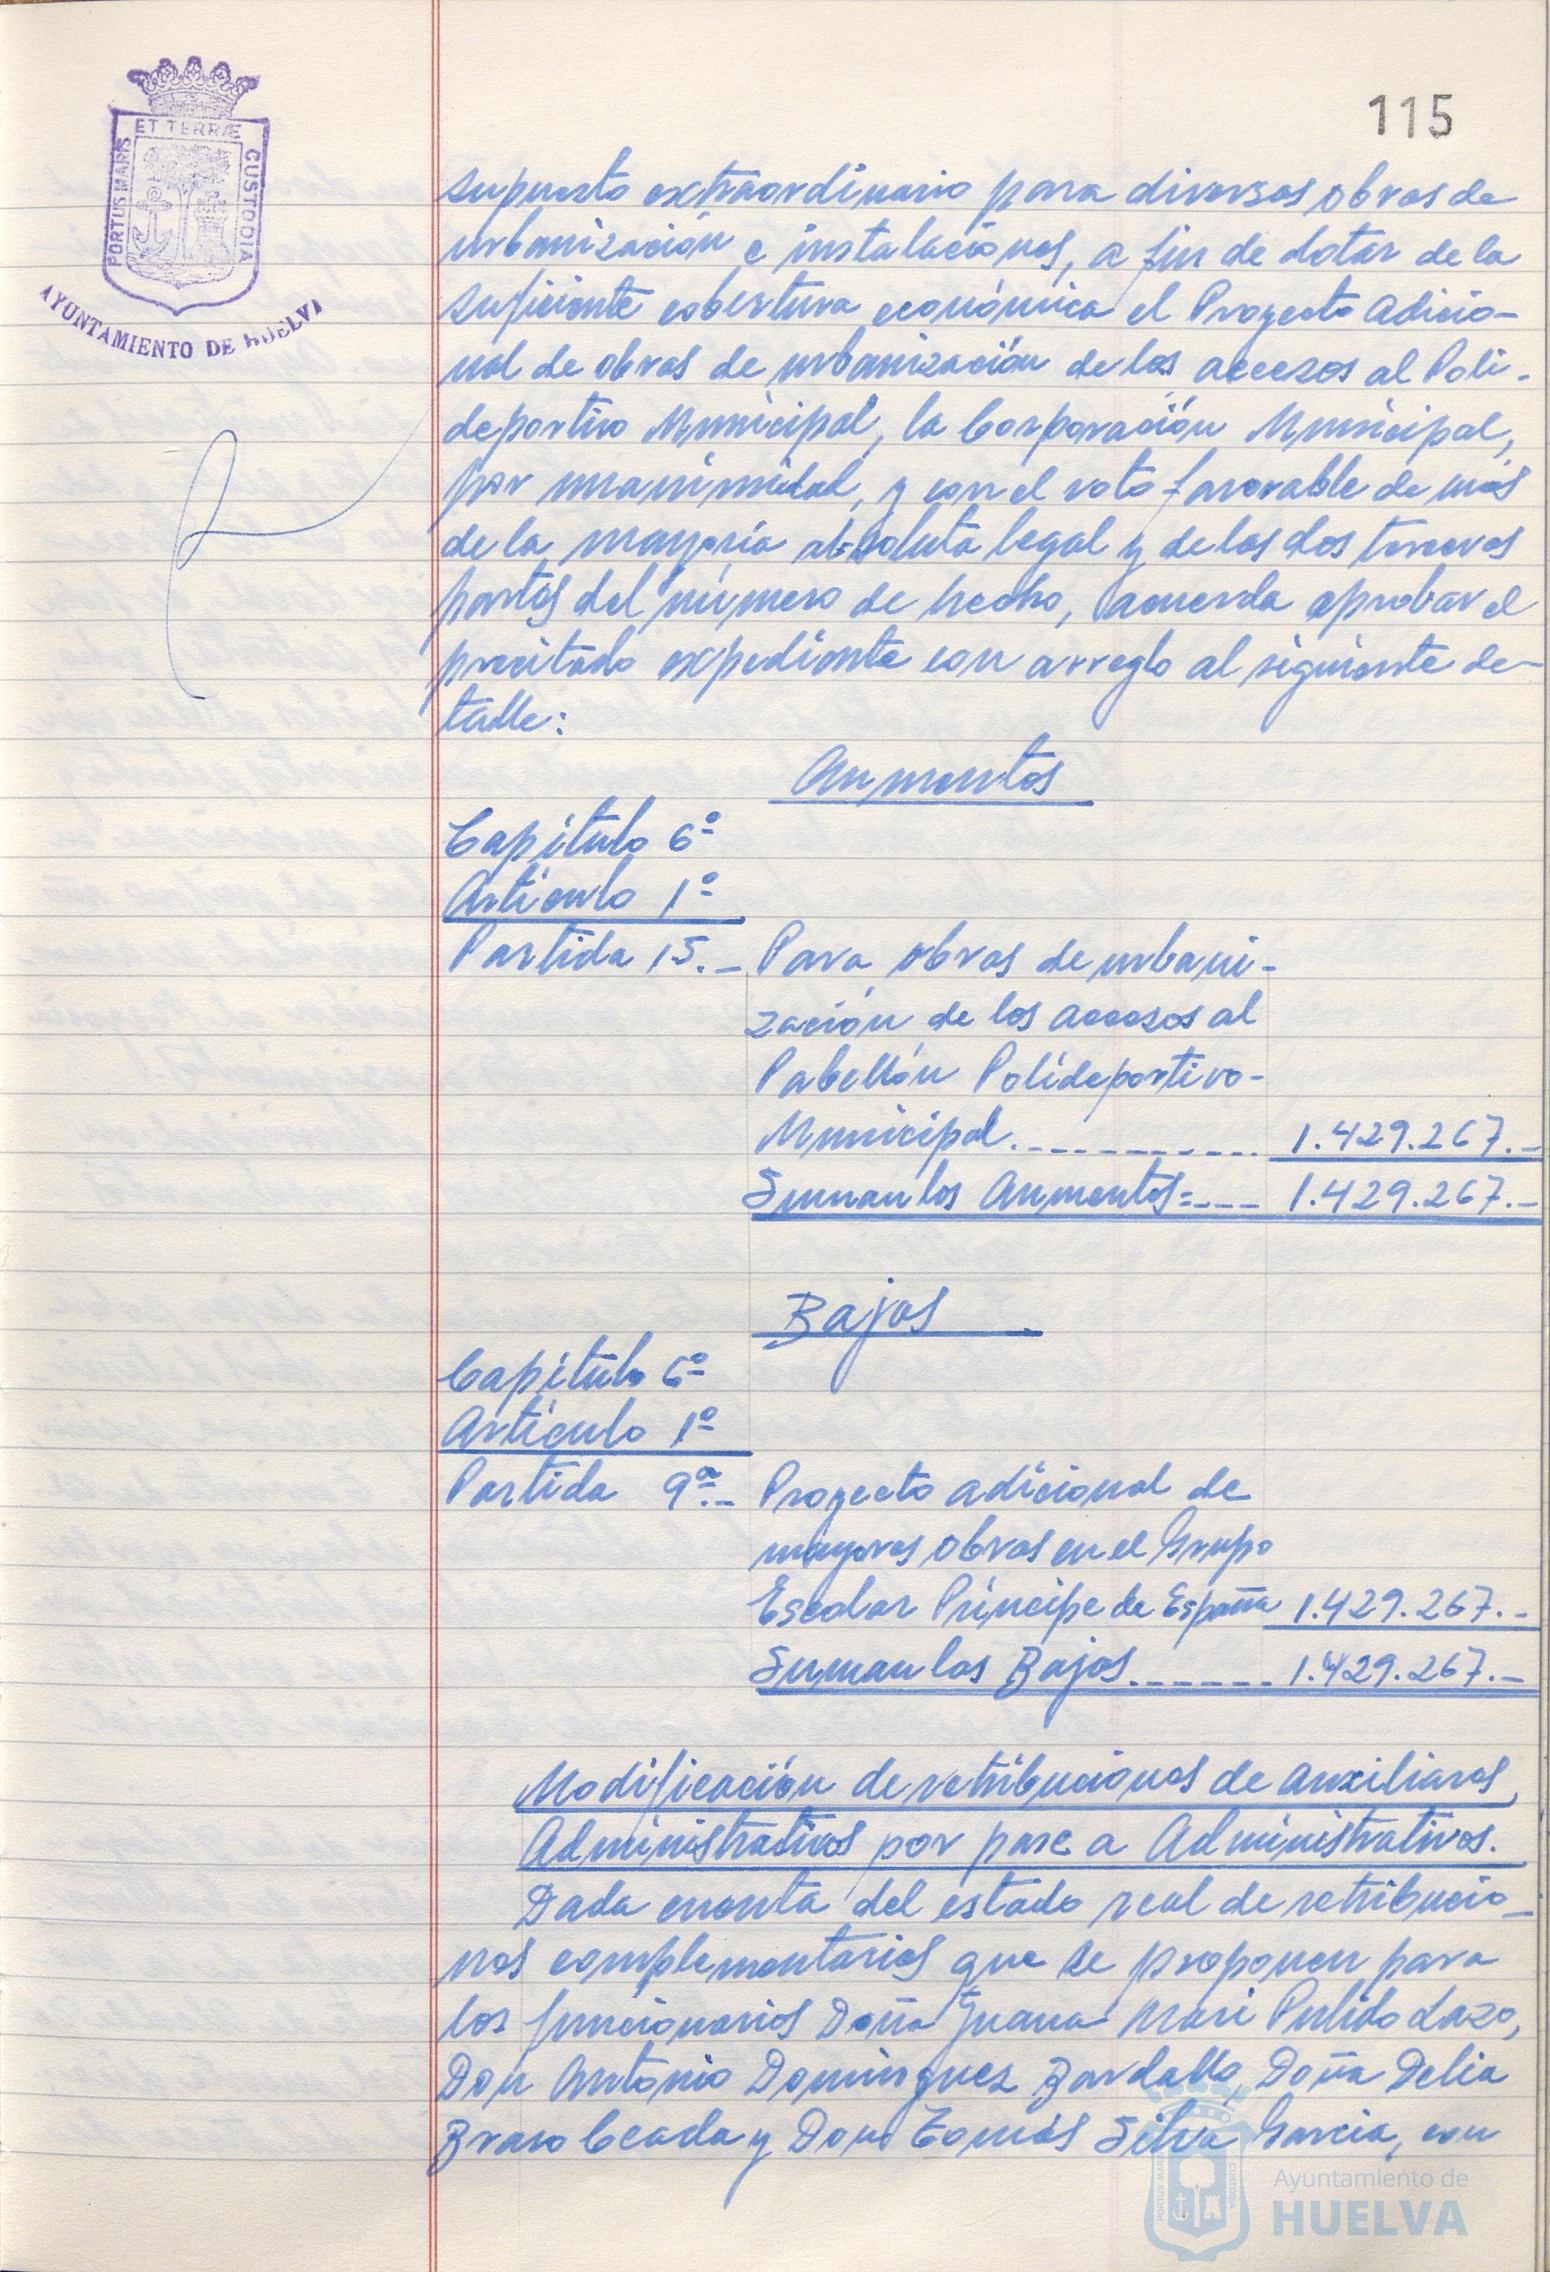 115
ET TERRÆ
PORTUS MARIS
CUSTODIA
AYUNTAMIENTO DE HUELVA
supuesto extraordinario para diversas obras de
urbanización e instalaciones, a fin de dotar de la
suficiente cobertura económica el Proyecto adicio-
nal de obras de urbanización de los accesos al Poli-
deportivo Municipal, la Corporación Municipal,
por unanimidad, y con el voto favorable de más
de la mayoría absoluta legal y de las dos terceras
partes del número de hecho, acuerda aprobar el
precitado expediente con arreglo al siguiente de-
talle:
Aumentos
Capítulo 6º
Artículo 1º
Partida 15.- Para obras de urbani-
zación de los accesos al
Pabellón Polideportivo-
Municipal.---------- 1.429.267.-
Suman los Aumentos=---- 1.429.267.-
Bajas
Capítulo 6º
Artículo 1º
Partida 9ª.- Proyecto adicional de
mayores obras en el Grupo
Escolar Príncipe de España 1.429.267.-
Suman las Bajas.------- 1.429.267.-
Modificación de retribuciones de auxiliares
Administrativos por pase a Administrativos.
Dada cuenta del estado real de retribucio-
nes complementarias que se proponen para
los funcionarios Doña Juana Mari Pulido Lazo,
Don Antonio Domínguez Bardallo, Doña Delia
Bravo Ceada y Don Tomás Silva García, con
PORTUS MARIS
CUSTODIA
Ayuntamiento de
HUELVA